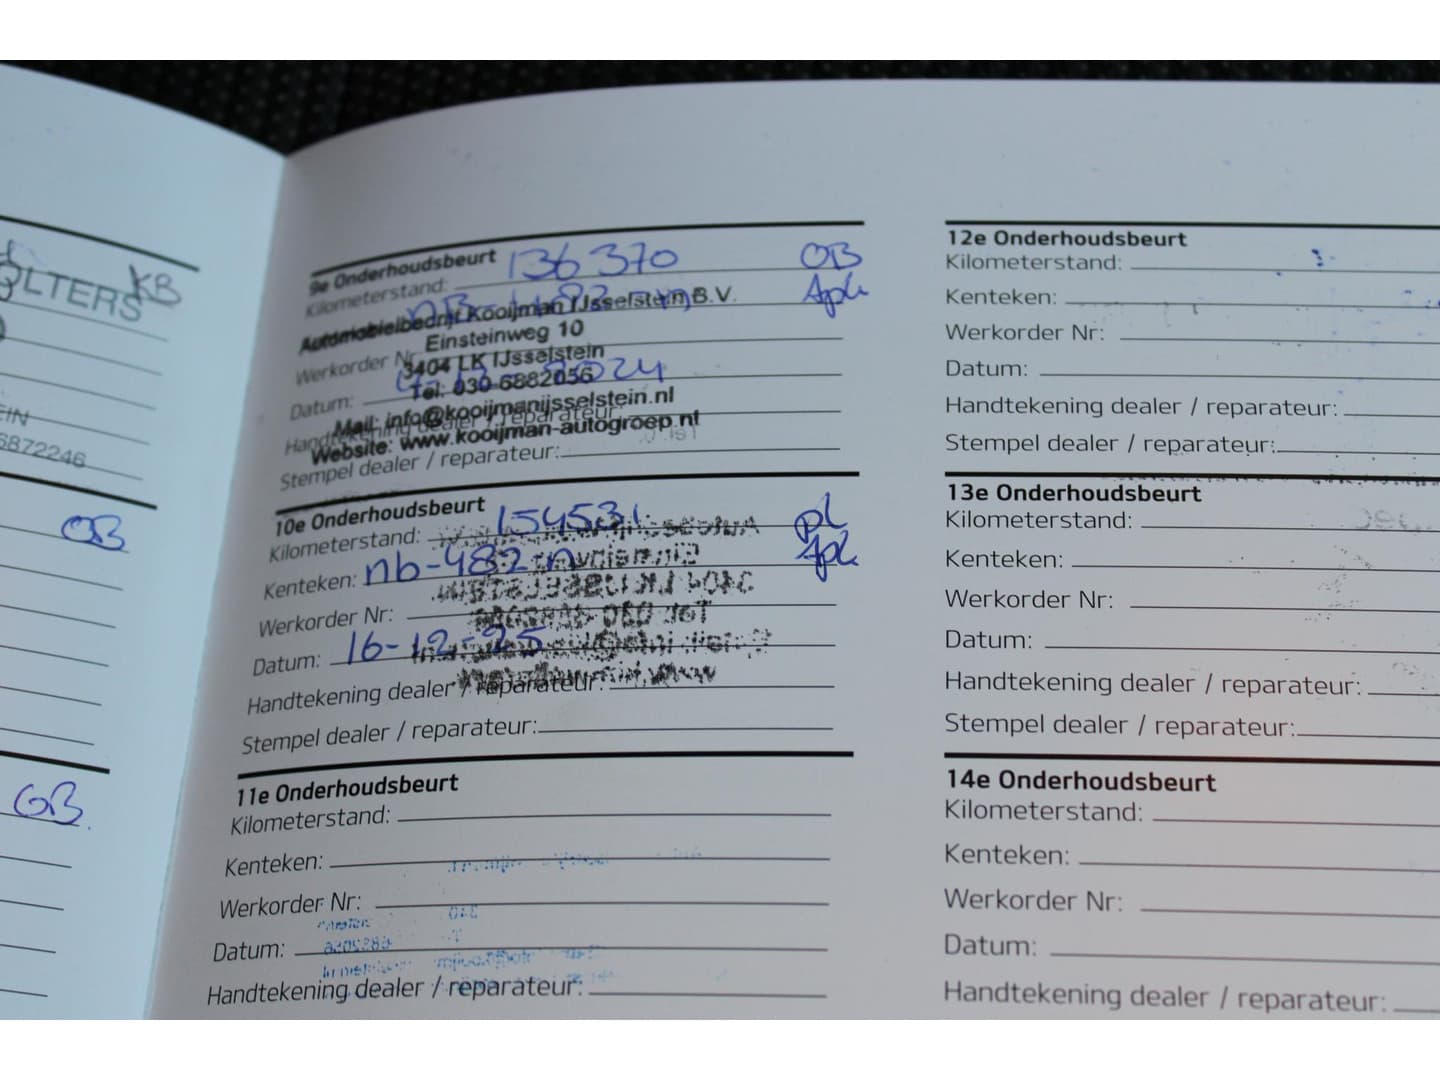 KB
OLTERS
EIN
6872246
OB
OB
9e Onderhoudsbeurt 136370 OB
Kilometerstand: Apk
Automobielbedrijf Kooijman IJsselstein B.V.
Einsteinweg 10
Werkorder Nr
3404 LK IJsselstein
Tel: 030-6882056
Datum: 2024
Mail: info@kooijmanijsselstein.nl
Handtekening dealer / reparateur:
Website: www.kooijman-autogroep.nl
Stempel dealer / reparateur:
10e Onderhoudsbeurt
Kilometerstand: 154531 pl
Kenteken: nb-482-n Apk
Werkorder Nr:
Datum: 16-12-25
Handtekening dealer / reparateur:
Stempel dealer / reparateur:
11e Onderhoudsbeurt
Kilometerstand:
Kenteken:
Werkorder Nr:
Datum:
Handtekening dealer / reparateur:
12e Onderhoudsbeurt
Kilometerstand:
Kenteken:
Werkorder Nr:
Datum:
Handtekening dealer / reparateur:
Stempel dealer / reparateur:
13e Onderhoudsbeurt
Kilometerstand:
Kenteken:
Werkorder Nr:
Datum:
Handtekening dealer / reparateur:
Stempel dealer / reparateur:
14e Onderhoudsbeurt
Kilometerstand:
Kenteken:
Werkorder Nr:
Datum:
Handtekening dealer / reparateur: